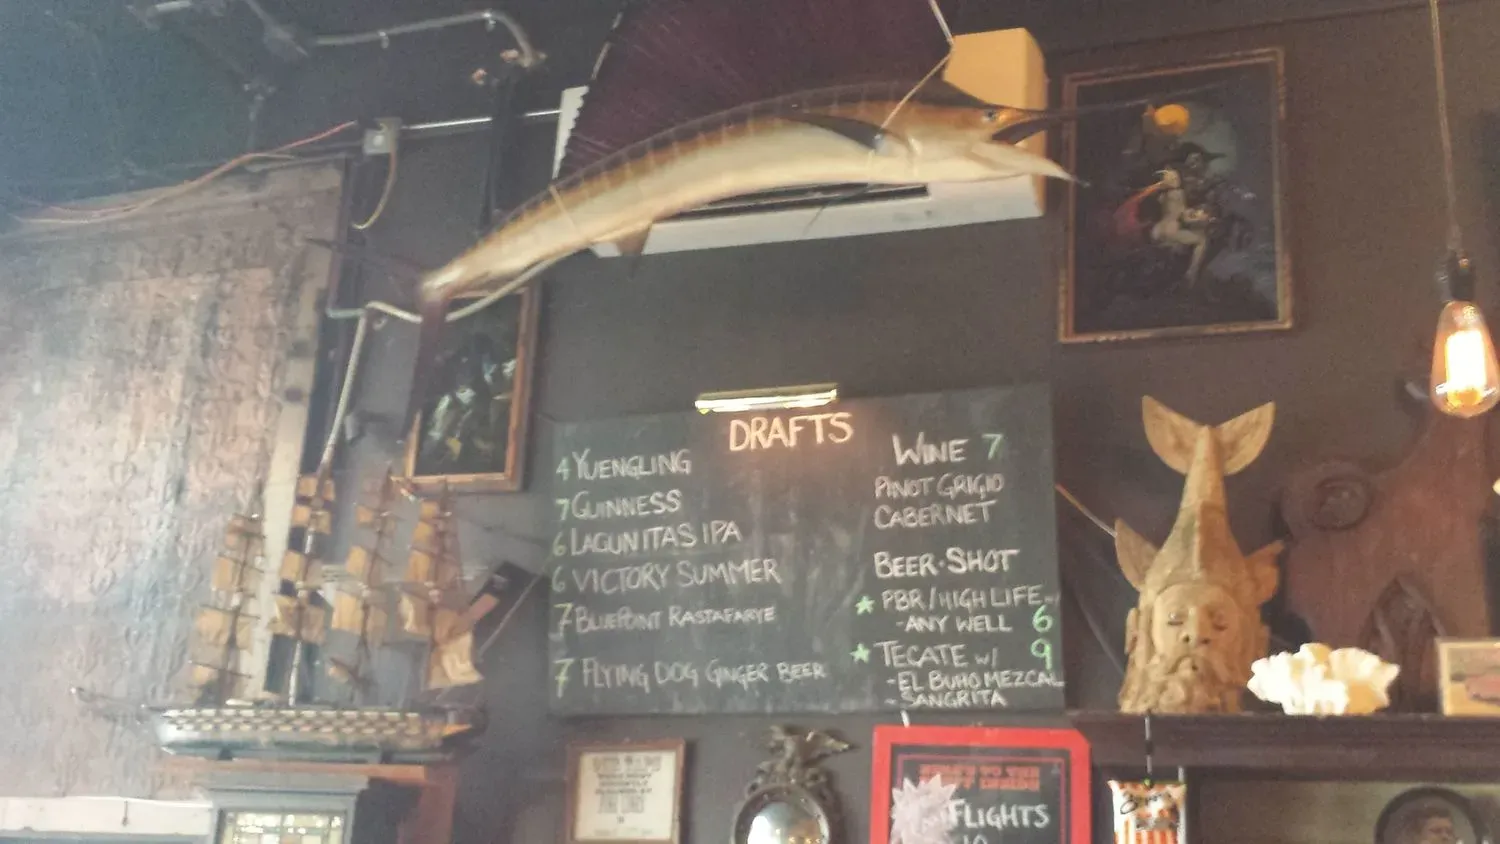 DRAFTS
4 YUENGLING
7 GUINNESS
6 LAGUNITAS IPA
6 VICTORY SUMMER
7 BLUEPOINT RASTAFARYE
7 FLYING DOG GINGER BEER
WINE 7
PINOT GRIGIO
CABERNET
BEER·SHOT
★ PBR/HIGH LIFE
-ANY WELL 6
★ TECATE W/ 9
-EL BUHO MEZCAL
-SANGRITA
FLIGHTS